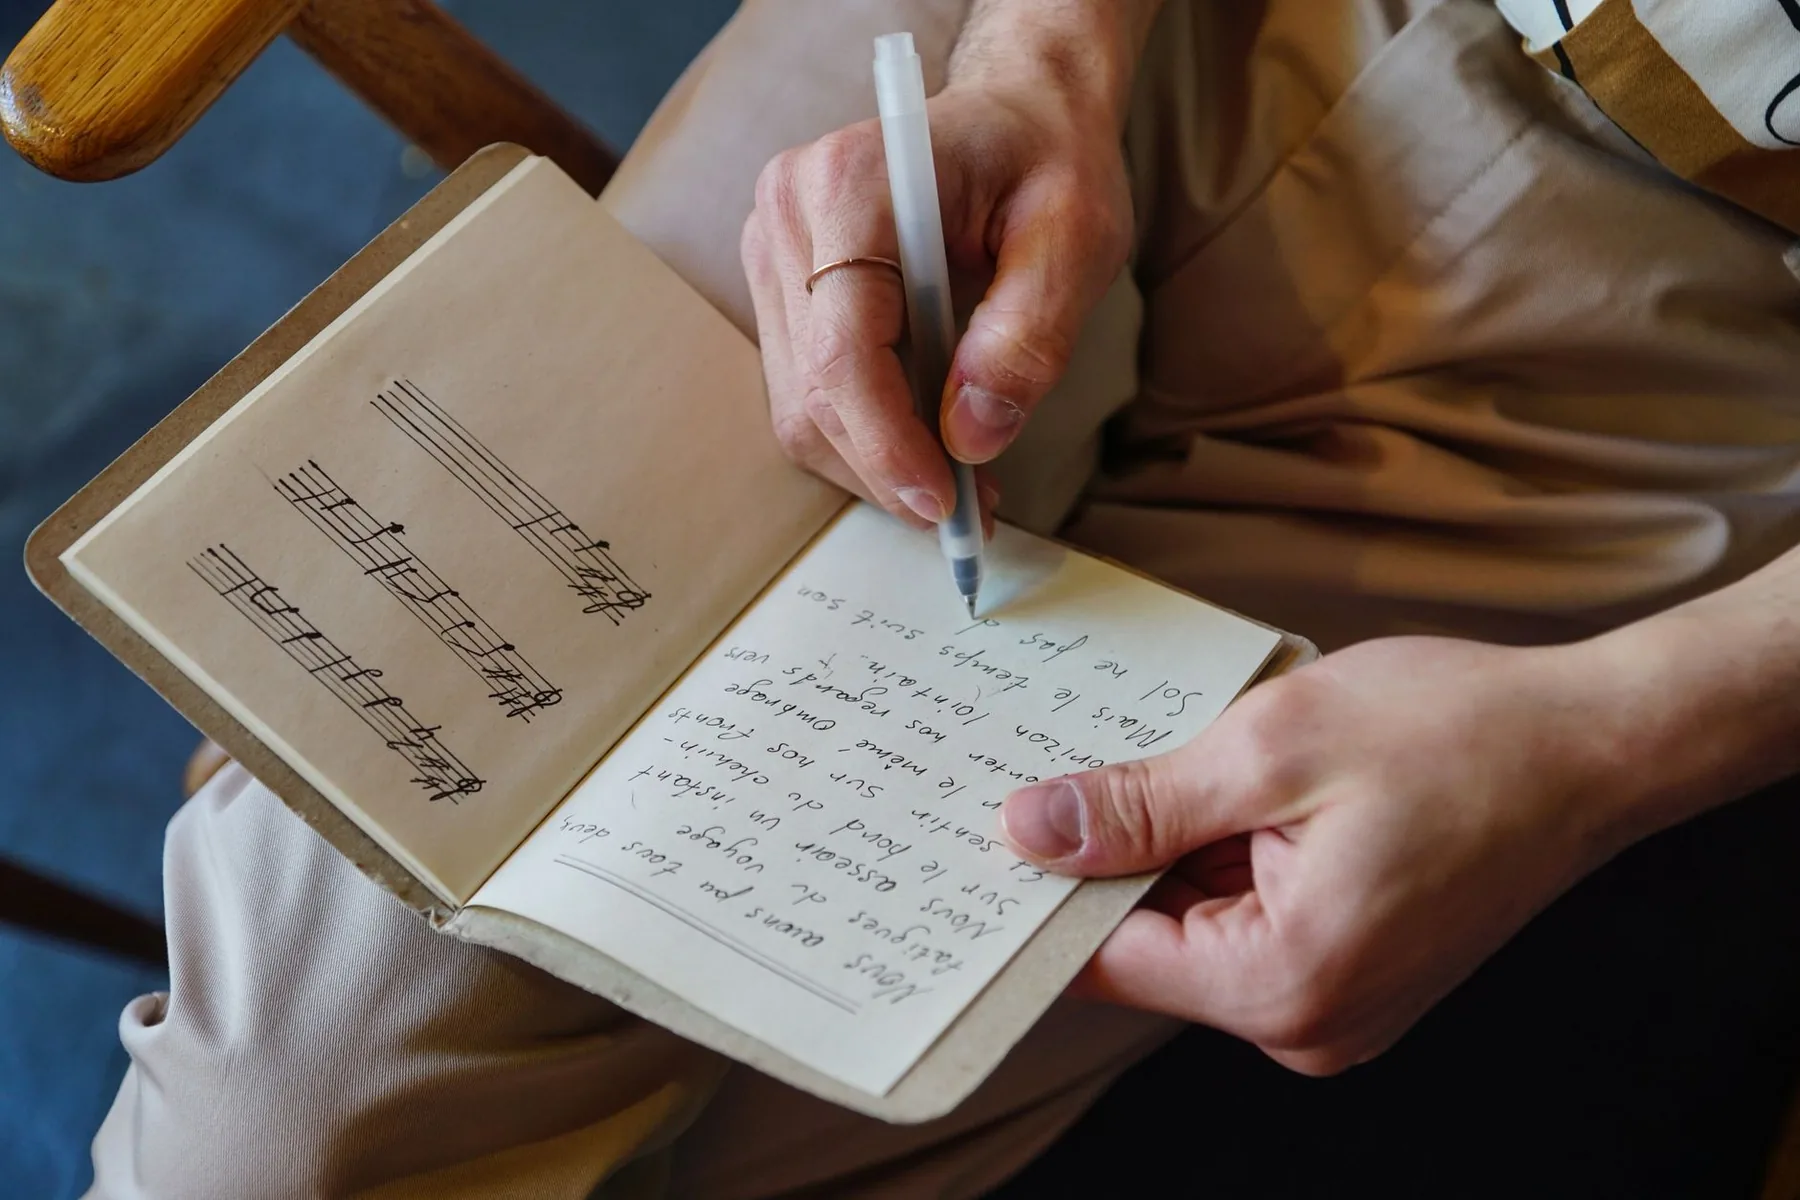 Nous avons pu tous deux,
fatigués du voyage
Nous asseoir un instant
sur le bord du chemin-
Et sentir sur nos fronts
le même ombrage
orter nos regards vers
orizon lointain.
Mais le temps suit son
Sol ne pas d